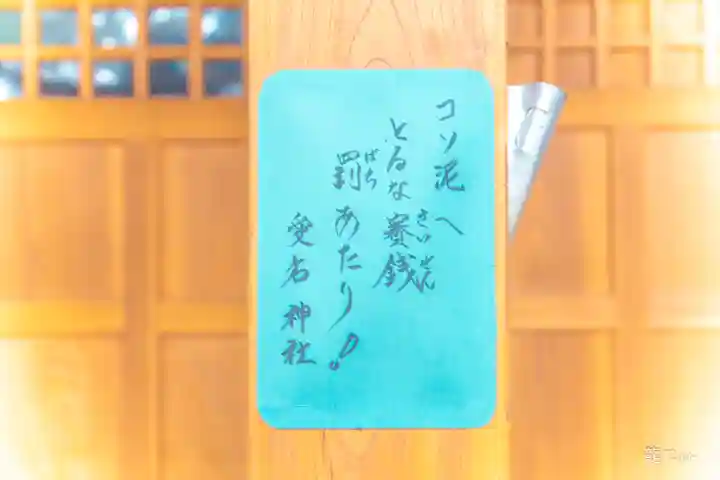 コソ泥へ
とるな賽銭
さいせん
罰あたり!
ばち
愛名神社